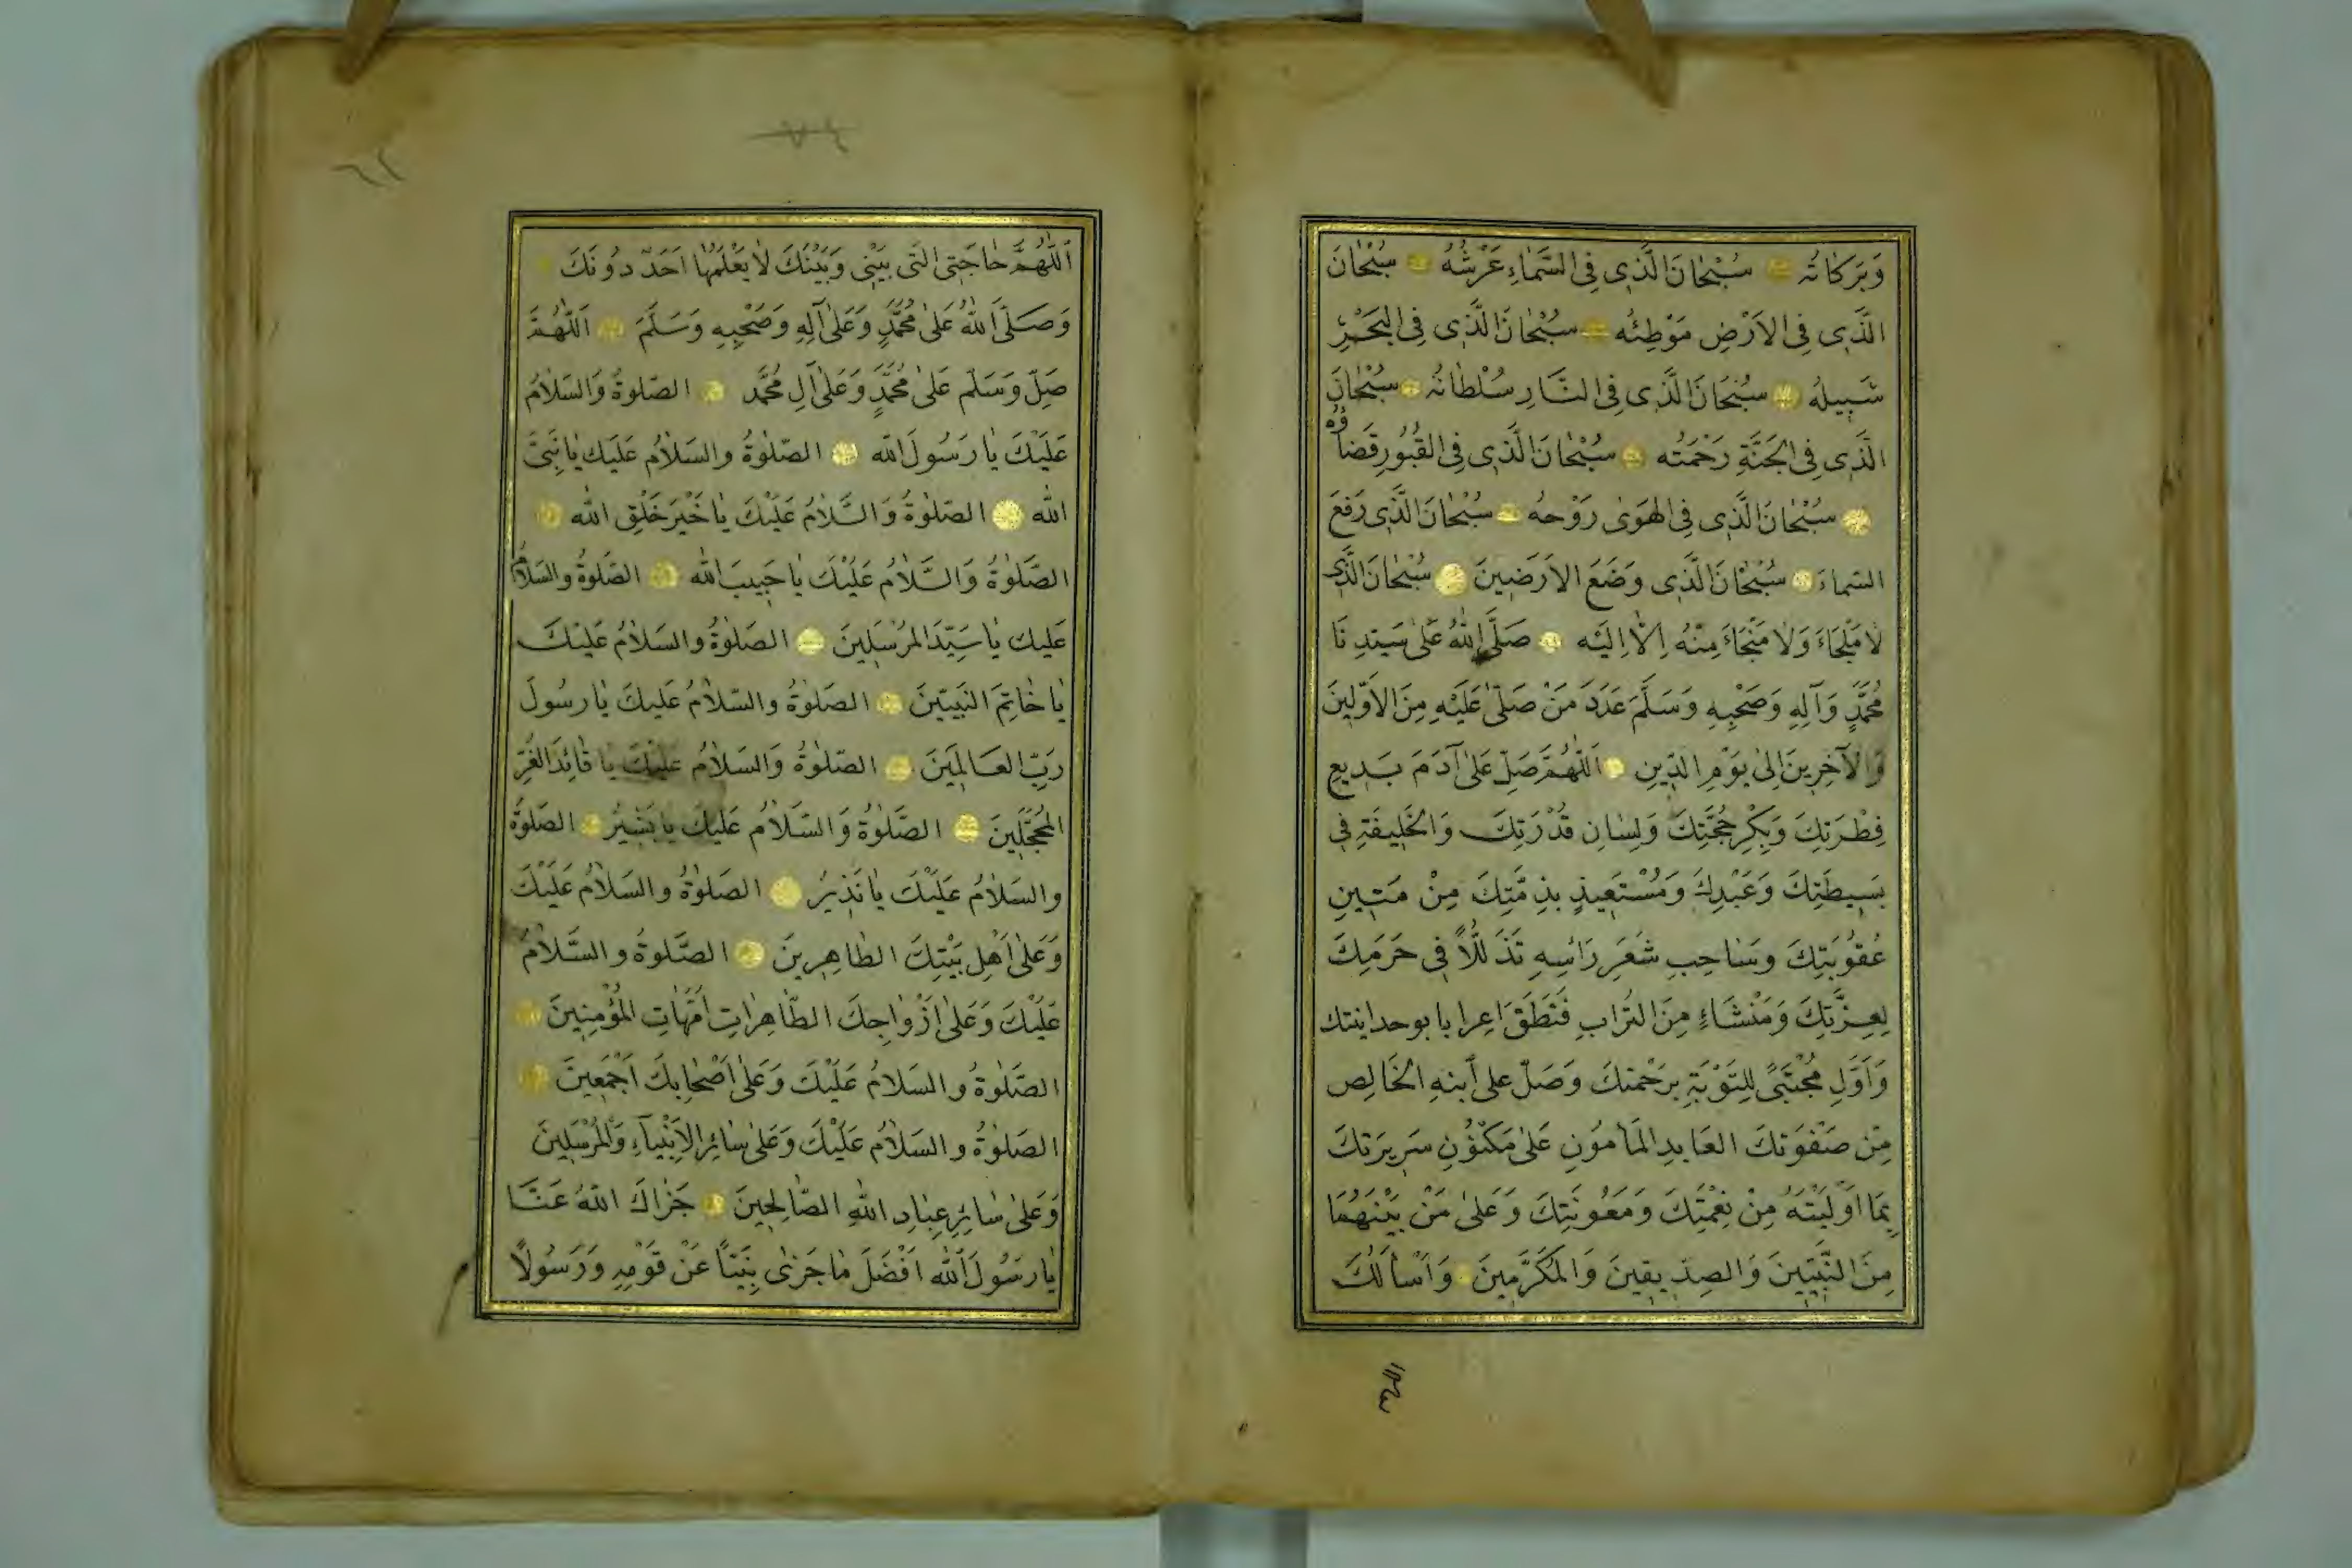 وَبَرَكَاتُهُ سُبْحَانَ الَّذِى فِى السَّمَاءِ عَرْشُهُ سُبْحَانَ
الَّذِى فِى الاَرْضِ مَوْطِئُه سُبْحَانَ الَّذِى فِى البَحْرِ
سَبِيلُهُ سُبْحَانَ الَّذِى فِى النَّارِ سُلْطَانُهُ سُبْحَانَ
الَّذِى فِى الجَنَّةِ رَحْمَتُه سُبْحَانَ الَّذِى فِى القُبُورِ قَضَاؤُهُ
سُبْحَانَ الَّذِى فِى الهَوىٰ رَوْحهُ سُبْحَانَ الَّذِى رَفَعَ
السَّماءَ سُبْحَانَ الَّذِى وَضَعَ الاَرَضِينَ سُبْحَانَ الَّذِى
لَا مَلْجَاءَ وَلَا مَنْجَاءَ مِنْهُ اِلَّا اِلَيْه صَلَّى اللهُ عَلٰى سَيِّدِنَا
مُحَمَّدٍ وَآلِهِ وَصَحْبِهِ وَسَلَّمَ عَدَدَ مَنْ صَلّٰى عَلَيْهِ مِنَ الاَوَّلِينَ
وَالآخِرِينَ اِلىٰ يَوْمِ الدِّينِ اَللّٰهُمَّ صَلِّ عَلىٰ آدَمَ بَدِيعِ
فِطْرَتِكَ وَبِكْرِ حُجَّتِكَ وَلِسَانِ قُدْرَتِكَ وَالخَلِيفَةِ فِى
بَسِيطَتِكَ وَعَبْدِكَ وَمُسْتَعِيذٍ بِذِمَّتِكَ مِنْ مَتِينِ
عُقُوبَتِكَ وَسَاحِبِ شَعَرِ رَاْسِهِ تَذَلُّلاً فِى حَرَمِكَ
لِعِزَّتِكَ وَمَنْشَاءٍ مِنَ التُرَابِ فَنَطَقَ اِعرابا بوحدانيتك
وَاَوَّلِ مُجْتَبًى لِلتَوْبَةِ بِرَحْمَتكَ وَصَلّ على اَبنهِ الخَالِصِ
مِن صَفْوَتكَ العَابِدِ المَامُونِ عَلىٰ مَكنُونِ سَرِيرَتكَ
بِمَا اَوْلَيْتَهُ مِنْ نِعْمَتِكَ وَمَعُونَتِكَ وَعَلىٰ مَنْ بَيْنَهُمَا
مِنَ النَّبِيّينَ وَالصِدّيقِينَ وَالمُكَرَّمِينَ وَاَسْأَلُكَ
اَللّٰهُمَّ حَاجَتِى الَّتِى بَيْنِى وَبَيْنَكَ لَا يَعْلَمُهَا اَحَدٌ دُونَكَ
وَصَلَّى اللهُ عَلىٰ مُحَمَّدٍ وَعَلىٰ آلِهِ وَصَحْبِهِ وَسَلَّمَ اَللّٰهُمَّ
صَلِّ وَسَلّم عَلىٰ مُحَمَّدٍ وَعَلىٰ آلِ مُحَمَّد الصّلوةُ وَالسَلَامُ
عَلَيْكَ يَا رَسُولَ الله الصّلٰوةُ والسَلَامُ عَلَيك يَا نَبِىَّ
الله الصّلٰوةُ وَالسَّلَامُ عَلَيْكَ يَا خَيْرَ خَلْقِ الله
الصَّلٰوةُ وَالسَّلَامُ عَلَيْكَ يَا حَبِيبَ الله الصَّلوةُ والسَلَامُ
عَليك يَا سَيِّدَ المُرْسَلِينَ الصَلٰوةُ والسَلَامُ عَلَيْكَ
يَا خَاتِمَ النَبِيّينَ الصَلٰوةُ والسّلَامُ عَلَيكَ يَا رسُولَ
رَبّ العَالَمِينَ الصّلٰوةُ وَالسَلَامُ عَلَيْكَ يا قَائِدَ الغُرّ
المُحَجَّلِينَ الصَّلٰوةُ وَالسَّلَامُ عَلَيكَ يا بَشِيرُ الصَلٰوةُ
والسَلَامُ عَلَيْكَ يَا نَذِيرُ الصَلٰوةُ والسَلَامُ عَلَيْكَ
وَعَلىٰ اَهْلِ بَيْتِكَ الطَاهِرِينَ الصَّلوةُ والسَّلَامُ
عَلَيْكَ وَعَلىٰ اَزْوَاجِكَ الطَّاهِرَاتِ اُمَّهَاتِ المُؤْمِنِينَ
الصَّلٰوةُ والسَلَامُ عَلَيْكَ وَعَلىٰ اَصْحَابِكَ اَجْمَعِينَ
الصَلٰوةُ والسَلَامُ عَلَيْكَ وَعَلىٰ سَائِرِ الاَنْبِيَآءِ وَالمُرْسَلِينَ
وَعَلىٰ سَائِرِ عِبَادِ اللهِ الصَّالِحِينَ جَزَاكَ اللهُ عَنَّا
يَا رَسُولَ اَللهِ اَفْضَلَ مَا جَزٰى نَبِيّاً عَنْ قَوْمِهِ وَرَسُولًا